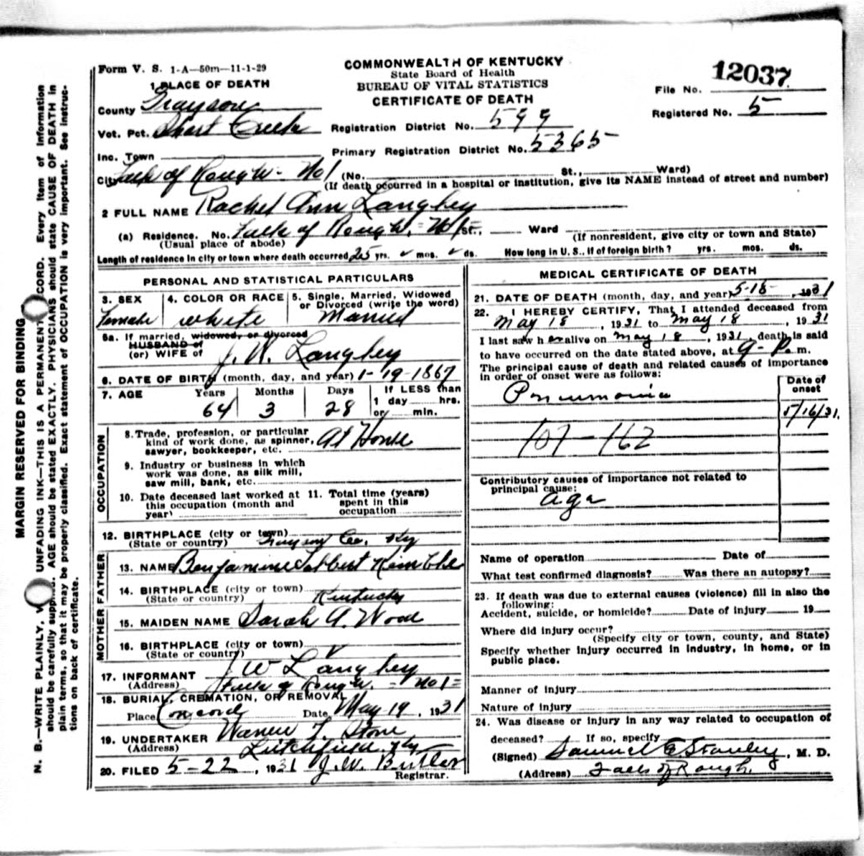 Form V. S. 1-A—50m—11-1-29
COMMONWEALTH OF KENTUCKY
State Board of Health
BUREAU OF VITAL STATISTICS
CERTIFICATE OF DEATH
File No. 12037
Registered No. 5
1 PLACE OF DEATH
County Grayson
Vot. Pct. Short Creek
Registration District No. 599
Inc. Town
Primary Registration District No. 5365
City Falls of Rough - No 1 (No. St., Ward)
(If death occurred in a hospital or institution, give its NAME instead of street and number)
2 FULL NAME Rachel Ann Langley
(a) Residence. No. Falls of Rough. No 1 St., Ward (If nonresident, give city or town and State)
(Usual place of abode)
Length of residence in city or town where death occurred 25 yrs. mos. ds. How long in U. S., if of foreign birth? yrs. mos. ds.
PERSONAL AND STATISTICAL PARTICULARS
3. SEX Female
4. COLOR OR RACE white
5. Single, Married, Widowed or Divorced (write the word) Married
5a. If married, widowed, or divorced
HUSBAND of
(or) WIFE of J. W. Langley
6. DATE OF BIRTH (month, day, and year) 1-19-1867
7. AGE Years 64 Months 3 Days 28 If LESS than 1 day hrs. or min.
OCCUPATION
8. Trade, profession, or particular kind of work done, as spinner, sawyer, bookkeeper, etc. At House
9. Industry or business in which work was done, as silk mill, saw mill, bank, etc.
10. Date deceased last worked at this occupation (month and year)
11. Total time (years) spent in this occupation
12. BIRTHPLACE (city or town) Grayson Co. Ky
(State or country)
FATHER
13. NAME Benjamine
14. BIRTHPLACE (city or town)
(State or country) Kentucky
MOTHER
15. MAIDEN NAME Sarah A. Wood
16. BIRTHPLACE (city or town)
(State or country)
17. INFORMANT J W Langley
(Address) Falls of Rough. - No 1 -
18. BURIAL, CREMATION, OR REMOVAL
Place Concord Date May 19, 1931
19. UNDERTAKER Stone
(Address) Litchfield, Ky
20. FILED 5-22, 1931 J. W. Butler
Registrar.
MEDICAL CERTIFICATE OF DEATH
21. DATE OF DEATH (month, day, and year) 5-18-, 1931
22. I HEREBY CERTIFY, That I attended deceased from
May 18, 1931 to May 18, 1931
I last saw her alive on May 18, 1931, death is said
to have occurred on the date stated above, at 9- P. m.
The principal cause of death and related causes of importance
in order of onset were as follows:
Date of onset
Pneumonia
5/16/31.
107-162
Contributory causes of importance not related to
principal cause:
age
Name of operation Date of
What test confirmed diagnosis? Was there an autopsy?
23. If death was due to external causes (violence) fill in also the
following:
Accident, suicide, or homicide? Date of injury 19
Where did injury occur?
(Specify city or town, county, and State)
Specify whether injury occurred in industry, in home, or in
public place.
Manner of injury
Nature of injury
24. Was disease or injury in any way related to occupation of
deceased? If so, specify
(Signed) Samuel E Stanley, M. D.
(Address) Falls of Rough.
MARGIN RESERVED FOR BINDING
N. B.—WRITE PLAINLY, UNFADING INK—THIS IS A PERMANENT CORD. Every item of information
should be carefully AGE should be stated EXACTLY. PHYSICIANS should state CAUSE OF DEATH in
plain terms, so that it may be properly classified. Exact statement of OCCUPATION is very important. See instruc-
tions on back of certificate.